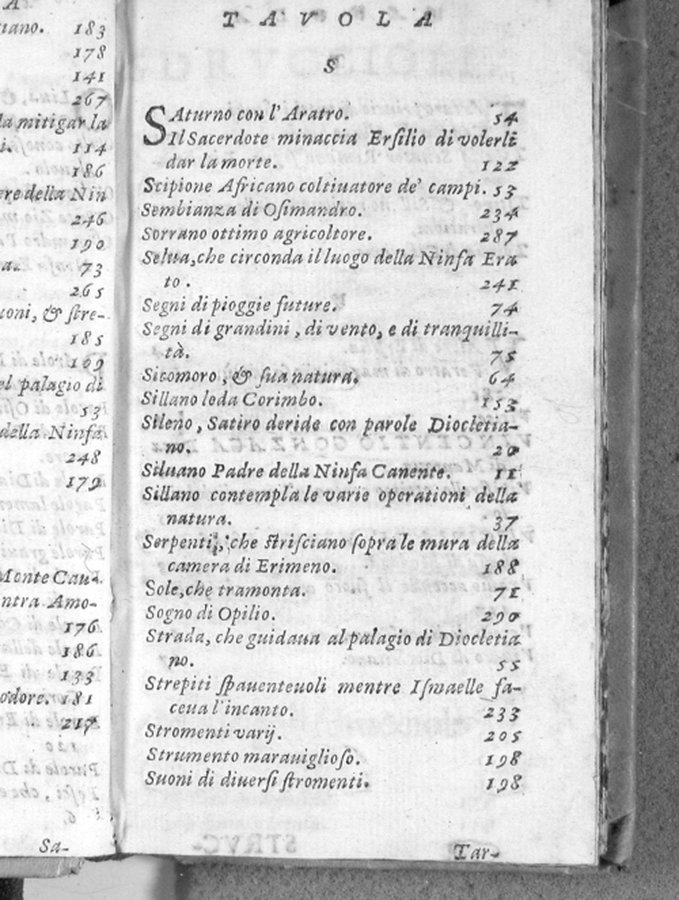 A
iano. 183
178
141
267
la mitigar la
i. 114
186
re della Nin
246
190
a. 73
265
coni, & ſtre-
185
169
el palagio di
53
della Ninfa
248
179
Monte Cau-
ntra Amo-
176
186
133
odore. 181
217
Sa-
TAVOLA
S
SAturno con l'Aratro. 54
Il Sacerdote minaccia Erſilio di volerli
dar la morte. 122
Scipione Africano coltiuatore de' campi. 53
Sembianza di Oſimandro. 234
Sorrano ottimo agricoltore. 287
Selua, che circonda il luogo della Ninfa Era
to. 241
Segni di pioggie future. 74
Segni di grandini, di vento, e di tranquilli-
tà. 75
Sicomoro, & ſua natura. 64
Sillano loda Corimbo. 153
Sileno, Satiro deride con parole Diocletia-
no. 20
Siluano Padre della Ninfa Canente. 11
Sillano contempla le varie operationi della
natura. 37
Serpenti, che ſtriſciano ſopra le mura della
camera di Erimeno. 188
Sole, che tramonta. 71
Sogno di Opilio. 290
Strada, che guidaua al palagio di Diocletia
no. 55
Strepiti ſpauenteuoli mentre Iſmaelle fa-
ceua l'incanto. 233
Stromenti varij. 205
Strumento marauiglioſo. 198
Suoni di diuerſi ſtromenti. 198
Tar-